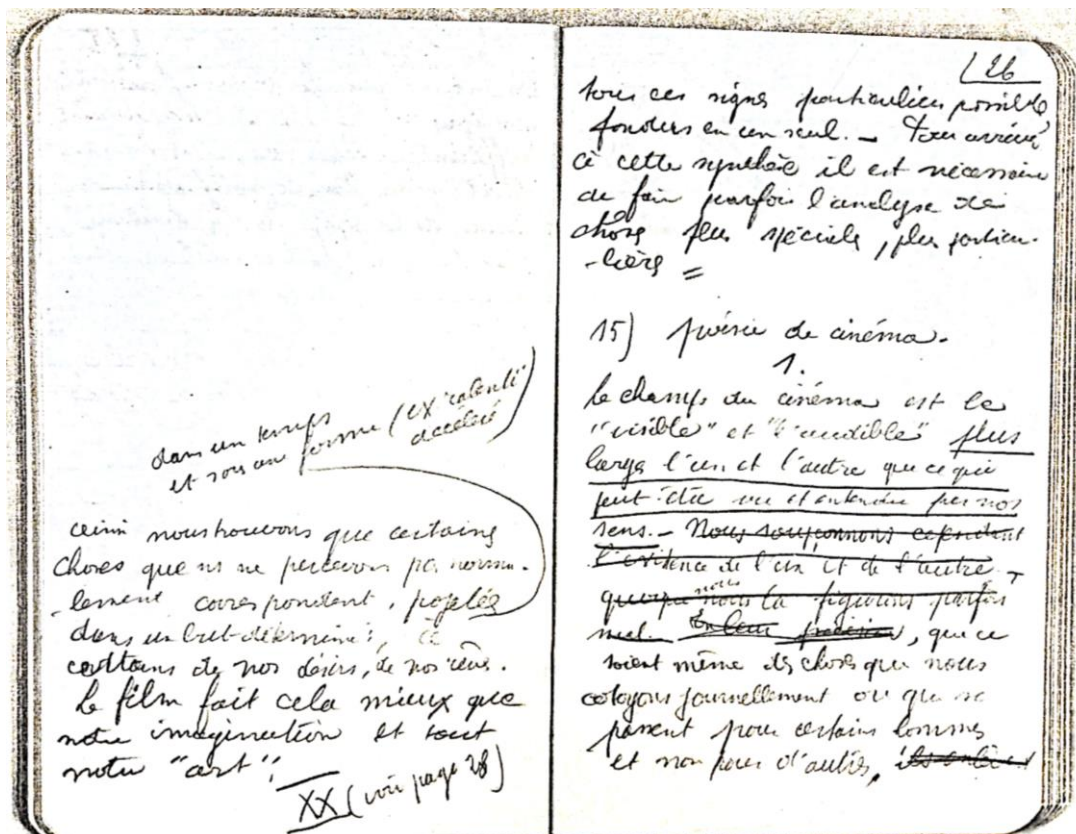 dans un temps
et sous une forme (ex: ralenti
accéléré)
ainsi nous trouvons que certaines
choses que ns ne percevons pas norma-
-lement correspondent, projetées
dans un but déterminé, à
certains de nos désirs, de nos rêves.
Le film fait cela mieux que
notre imagination et tout
notre "art";
XX (voir page 28)
26
tous ces signes particuliers possible
fondus en un seul. – Pour arriver
à cette synthèse il est nécessaire
de faire parfois l'analyse de
chose plus spéciale, plus particu-
-lière =
15) poésie de cinéma.
1.
Le champs du cinéma est le
"visible" et "l'audible" plus
large l'un et l'autre que ce qui
peut être vu et entendu par nos
sens. – Nous soupçonnons cependant
l'existence de l'un et de l'autre –
quoique nous la figurions parfois
mal. En leur, que ce
soient même des choses que nous
cotoyons journellement ou qui se
passent pour certains hommes
et non pour d'autres,